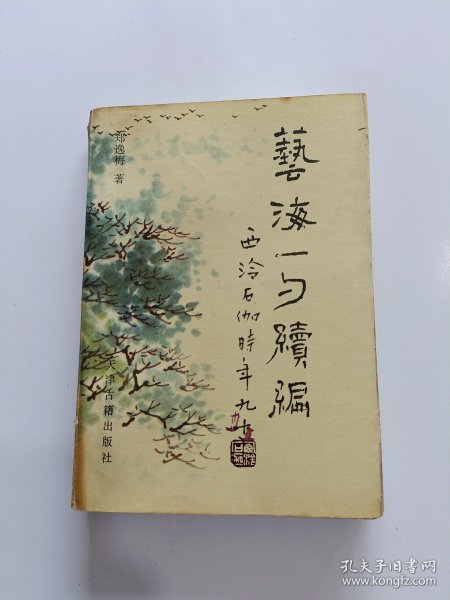 藝海一勺續編
西泠石伽時年九十
郑逸梅 著
天津古籍出版社
孔夫子旧书网
www.kongfz.com